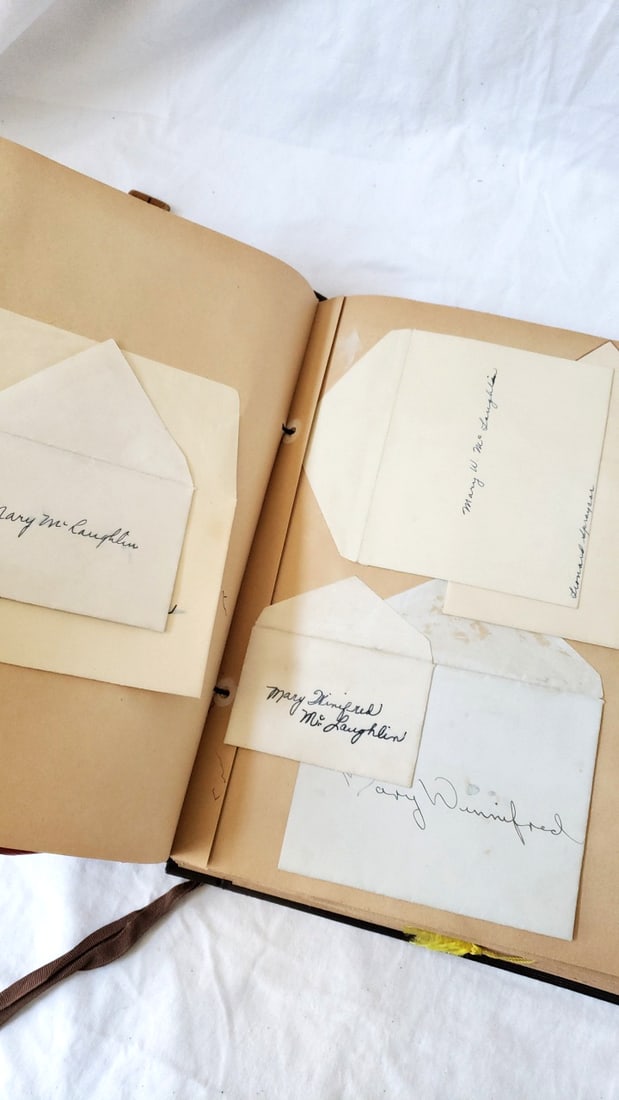 Mary McLaughlin
Mary W. McLaughlin
Leonard
Mary Winifred
McLaughlin
Mary Winnifred